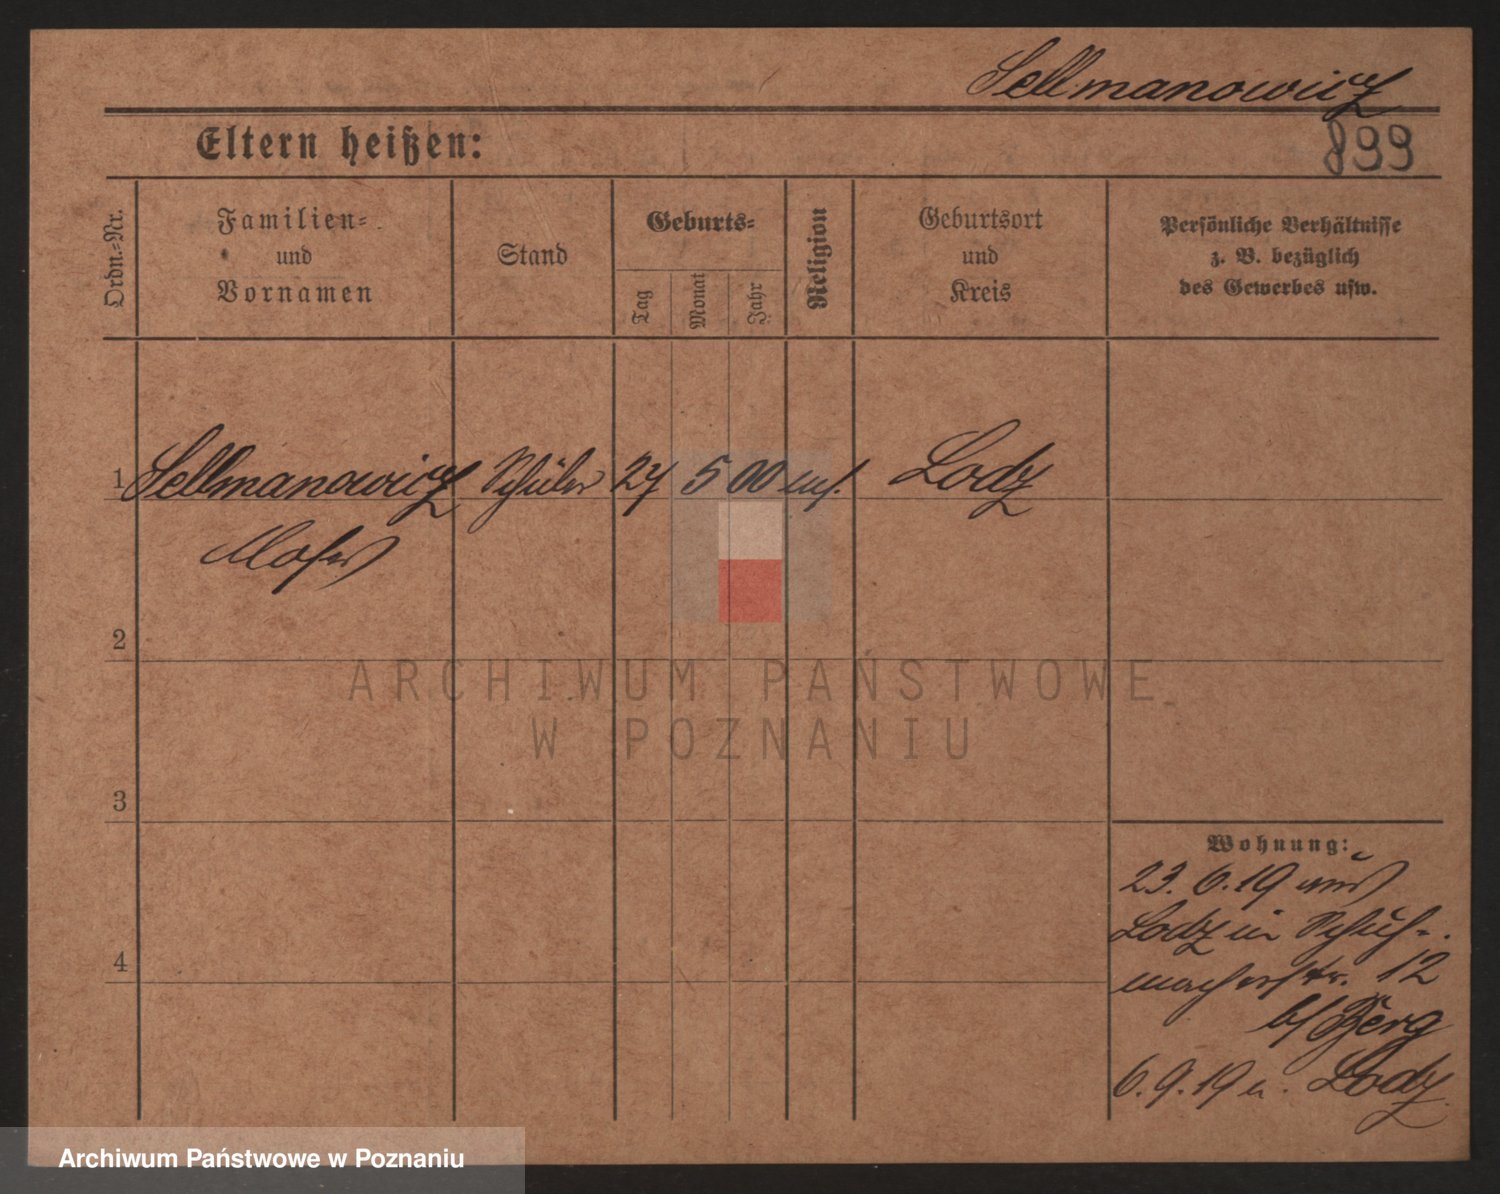 Sellmanowicz
899
Eltern heißen:
Ordn.=Nr.
Familien=
und
Vornamen
Stand
Geburts=
Tag
Monat
Jahr
Religion
Geburtsort
und
Kreis
Persönliche Verhältnisse
z. B. bezüglich
des Gewerbes usw.
1 Sellmanowicz Schüler 27 5 00 Lodz
Moses
2
3
4
ARCHIWUM PAŃSTWOWE
W POZNANIU
Wohnung:
23. 6. 19 aus
Lodz in Schuh-
macherstr. 12
b/ Berg
6. 9. 19 n. Lodz
Archiwum Państwowe w Poznaniu